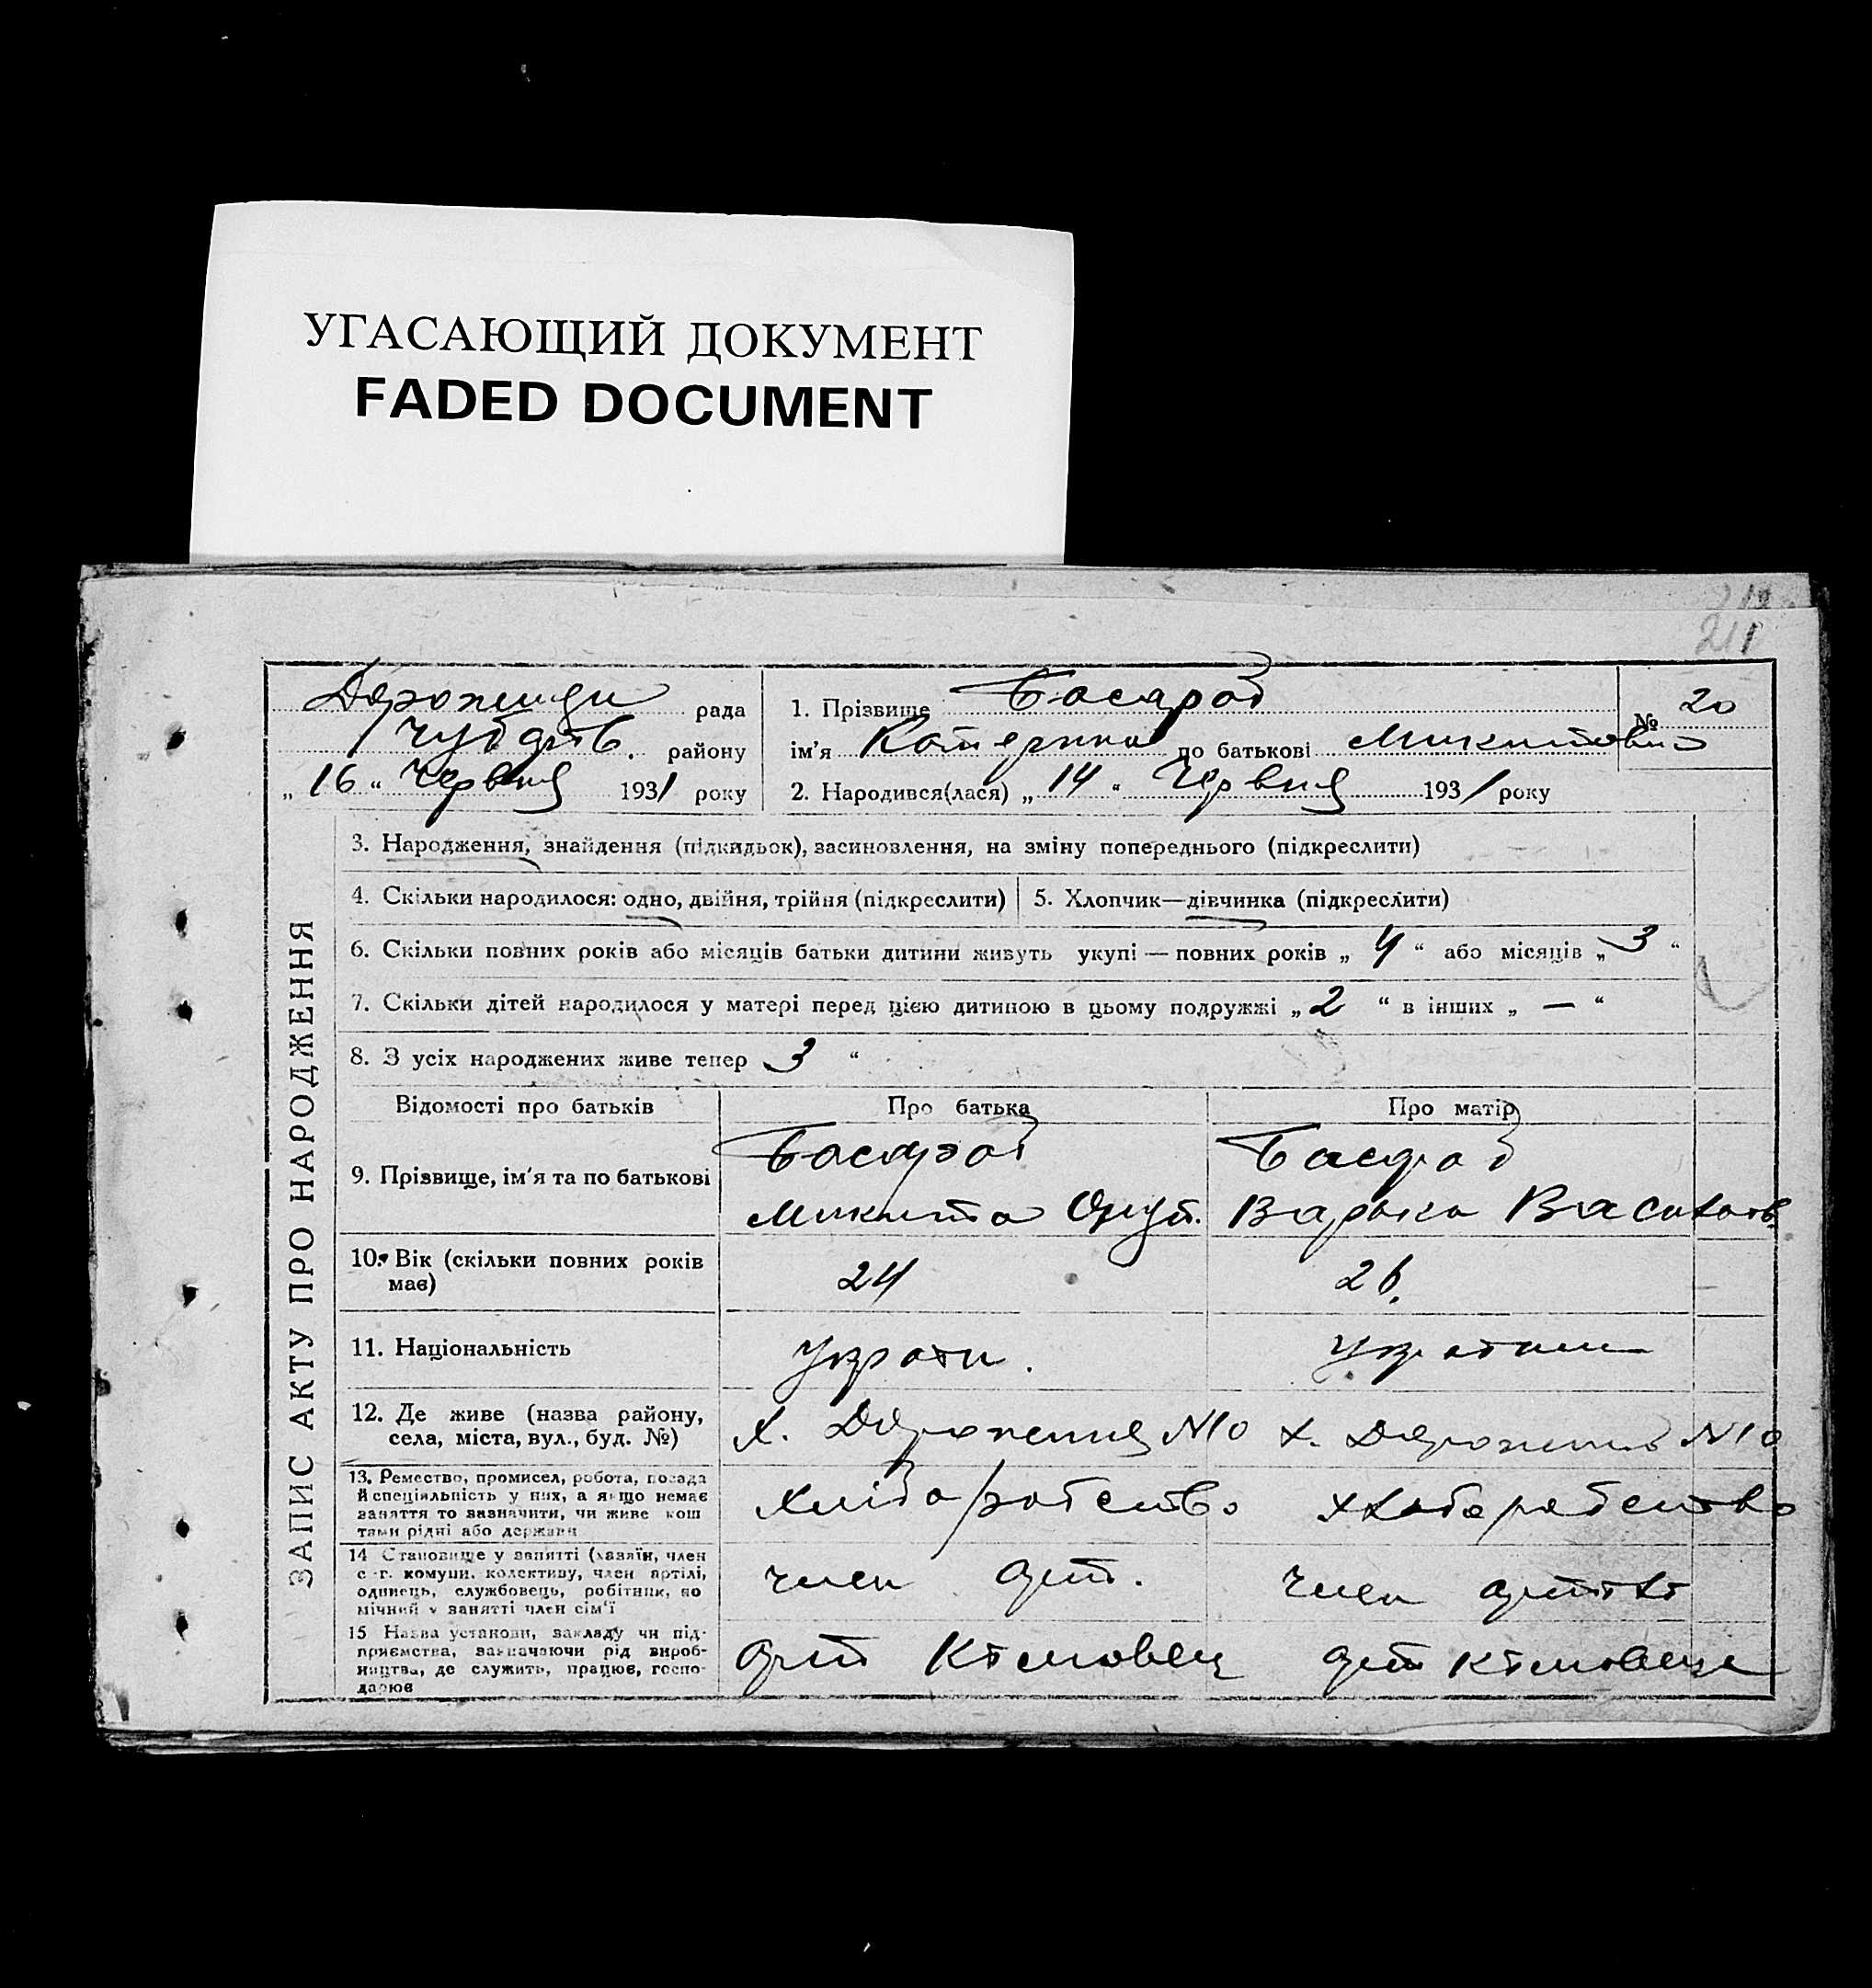 УГАСАЮЩИЙ ДОКУМЕНТ
FADED DOCUMENT
211
рада
района
району
„ 16 “ Червня 1931 року
1. Прізвище Басараб
№ 20
ім'я Катерина по батькові Микитовна
2. Народився(лася) „ 14 “ Червня 1931 року
ЗАПИС АКТУ ПРО НАРОДЖЕННЯ
3. Народження, знайдення (підкидьок), засиновлення, на зміну попереднього (підкреслити)
4. Скільки народилося: одно, двійня, трійня (підкреслити)
5. Хлопчик—дівчинка (підкреслити)
6. Скільки повних років або місяців батьки дитини живуть укупі — повних років „ 4 “ або місяців „ 3 “
7. Скільки дітей народилося у матері перед цією дитиною в цьому подружжі „ 2 “ в інших „ — “
8. З усіх народжених живе тепер 3 “
Відомості про батьків
Про батька
Про матір
9. Прізвище, ім'я та по батькові
Басараб
Микита
Басараб
Варька Васильов.
10. Вік (скільки повних років
має)
24
26.
11. Національність
україн.
12. Де живе (назва району,
села, міста, вул., буд. №)
х. N10
х. N10
13. Ремество, промисел, робота, посада
й спеціяльність у них, а якщо немає
заняття то зазначити, чи живе кош
тами рідні або держави
хліборобство
хліборобство
14 Становище у занятті (хазяїн, член
с.-г. комуни, колективу, член артілі,
одинець, службовець, робітник, по
мічний у занятті член сім'ї
член арт.
член
15 Назва установи, закладу чи під-
приємства, зазначаючи рід вироб-
ництва, де служить, працює, госпо-
дарює
арт
арт